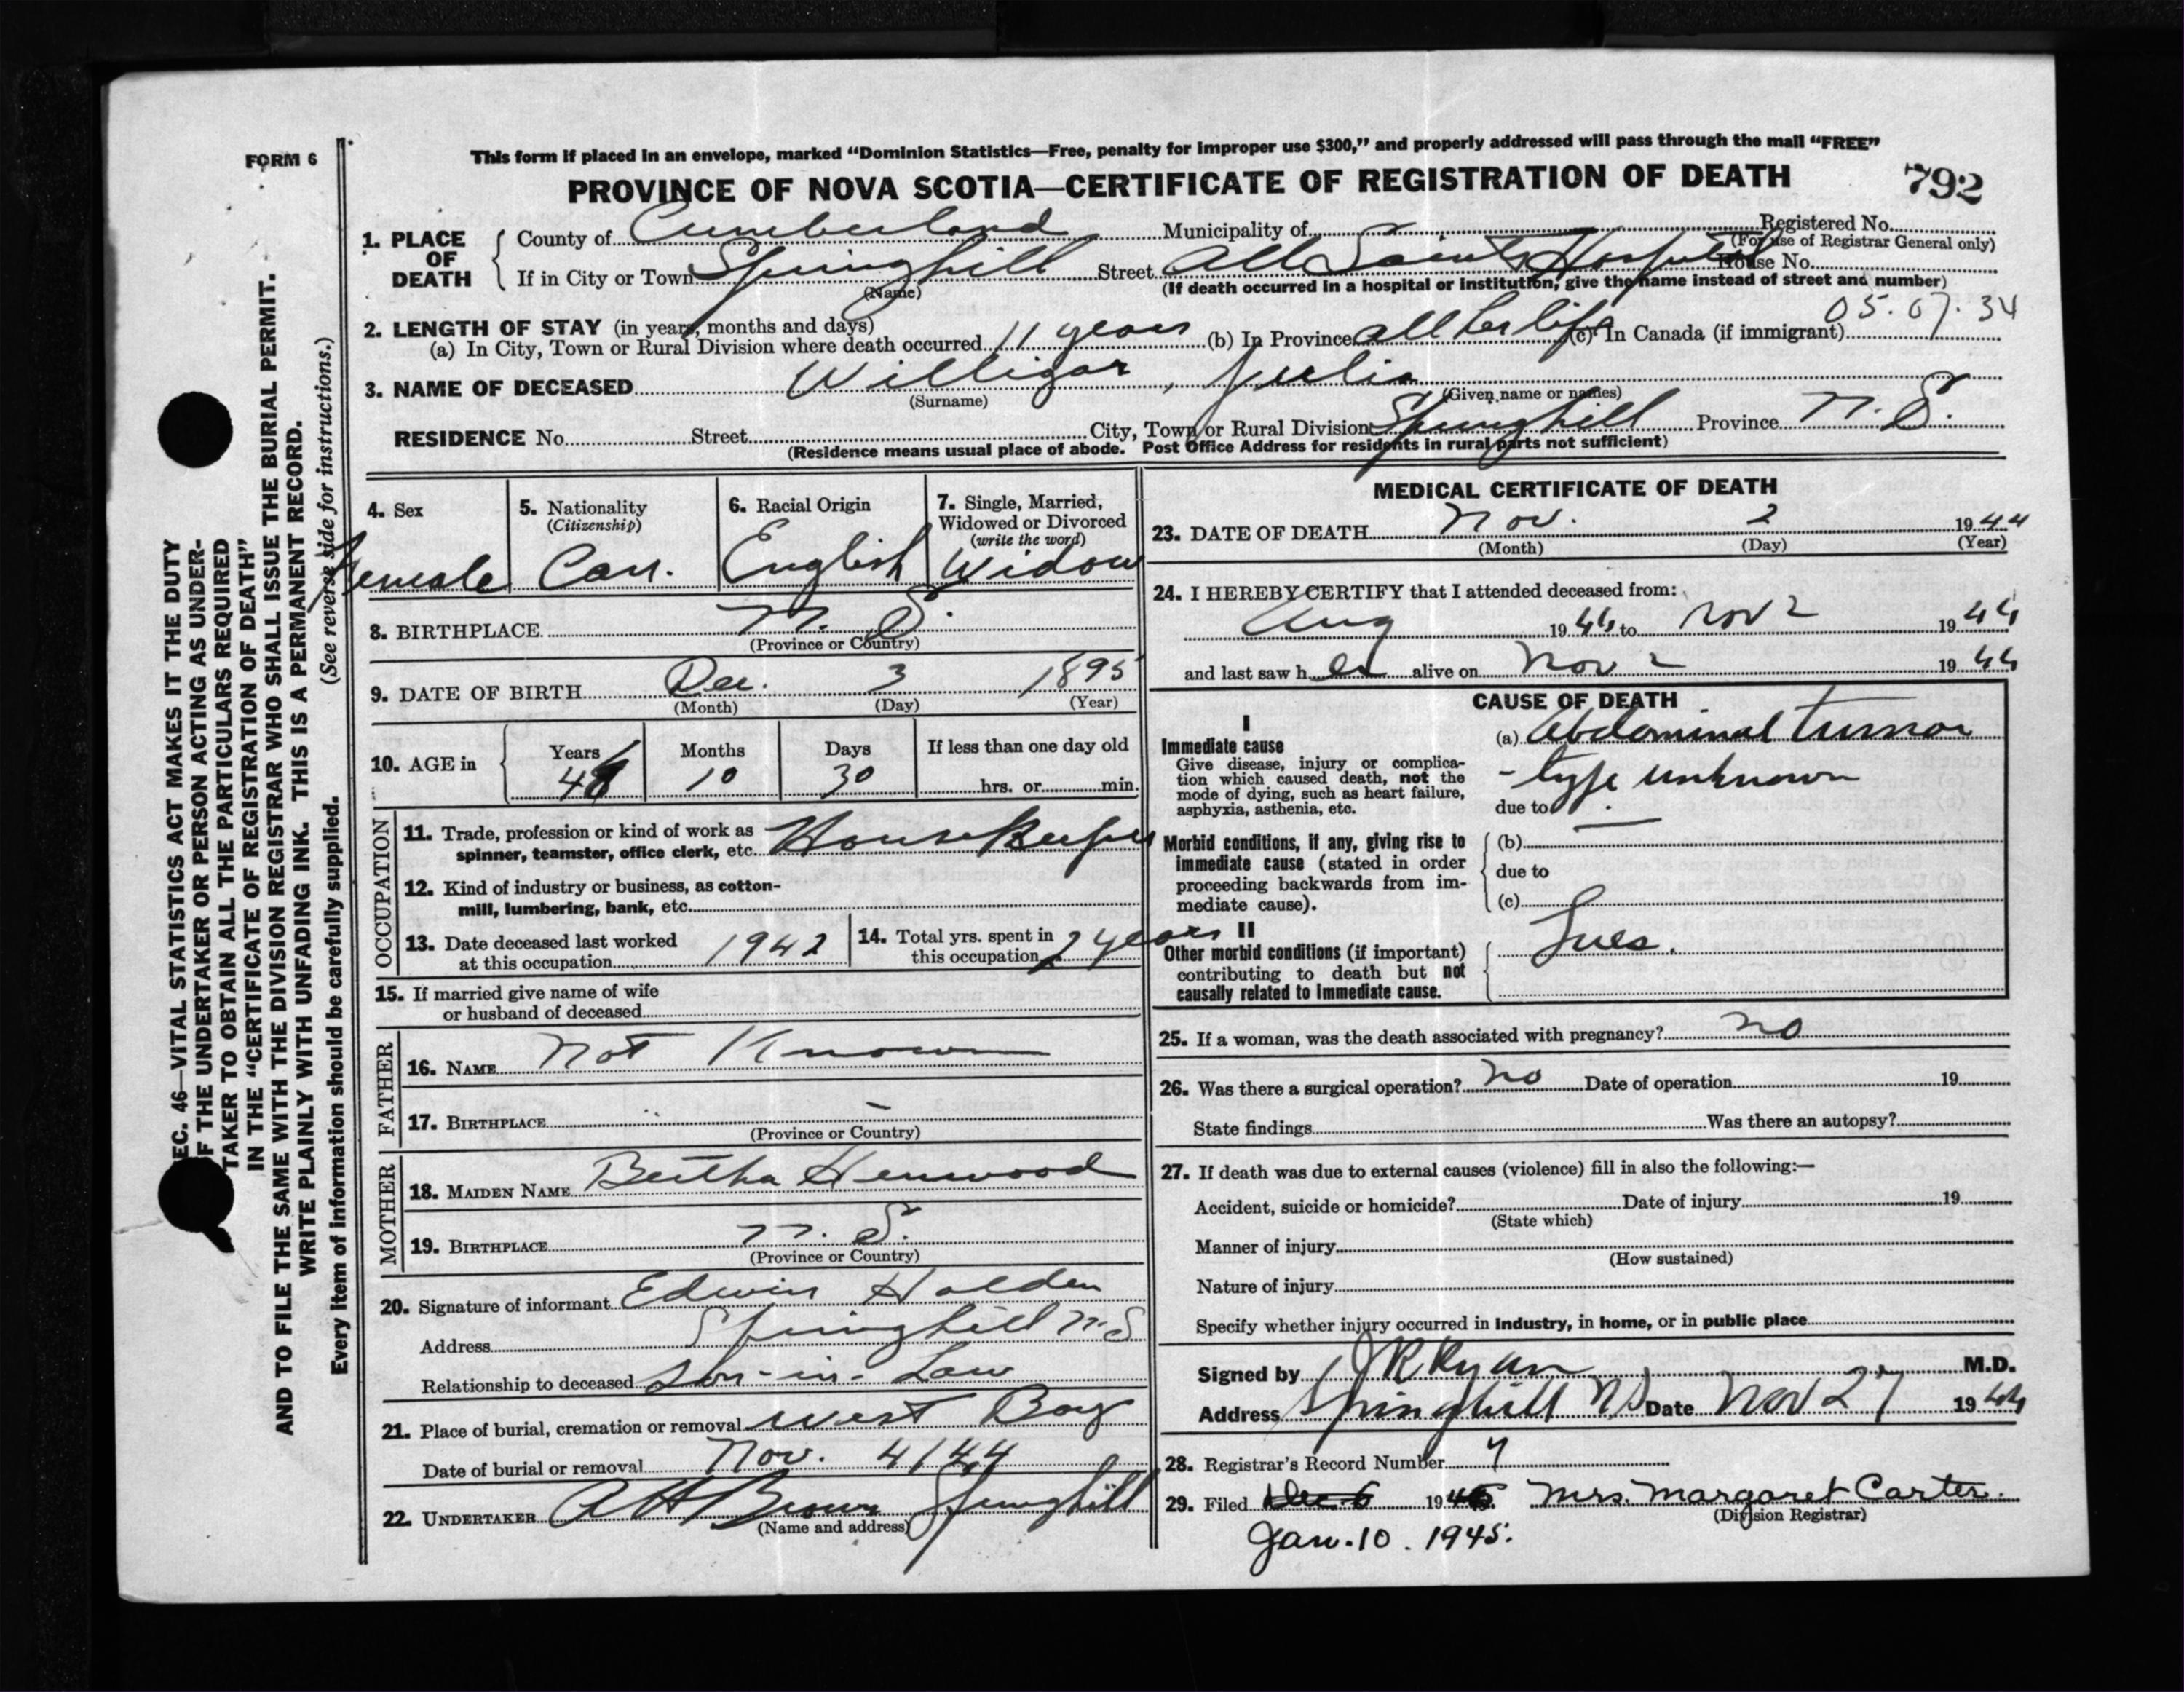 FORM 6
This form if placed in an envelope, marked “Dominion Statistics—Free, penalty for improper use $300,” and properly addressed will pass through the mail “FREE”
PROVINCE OF NOVA SCOTIA—CERTIFICATE OF REGISTRATION OF DEATH
792
1. PLACE OF DEATH
County of Cumberland Municipality of Registered No.
(For use of Registrar General only)
If in City or Town Springhill Street All Saints Hospital House No.
(Name) (If death occurred in a hospital or institution, give the name instead of street and number)
05.07.34
2. LENGTH OF STAY (in years, months and days)
(a) In City, Town or Rural Division where death occurred 11 years (b) In Province all her life (c) In Canada (if immigrant)
3. NAME OF DECEASED Willigar, Julia
(Surname) (Given name or names)
RESIDENCE No. Street City, Town or Rural Division Springhill Province N. S.
(Residence means usual place of abode. Post Office Address for residents in rural parts not sufficient)
4. Sex Female
5. Nationality (Citizenship) Can.
6. Racial Origin English
7. Single, Married, Widowed or Divorced (write the word) Widow
8. BIRTHPLACE N. S.
(Province or Country)
9. DATE OF BIRTH Dec. 3 1895
(Month) (Day) (Year)
10. AGE in Years Months Days If less than one day old
10 30 hrs. or min.
OCCUPATION
11. Trade, profession or kind of work as spinner, teamster, office clerk, etc. Housekeeper
12. Kind of industry or business, as cotton-mill, lumbering, bank, etc.
13. Date deceased last worked at this occupation 1942
14. Total yrs. spent in this occupation 2 years
15. If married give name of wife or husband of deceased
FATHER
16. NAME Not Known
17. BIRTHPLACE –
(Province or Country)
MOTHER
18. MAIDEN NAME Bertha Henwood
19. BIRTHPLACE N. S.
(Province or Country)
20. Signature of informant Edwin Holden
Address Springhill N.S
Relationship to deceased Son-in-Law
21. Place of burial, cremation or removal West Bay
Date of burial or removal Nov. 4/44
22. UNDERTAKER A H Brown Springhill
(Name and address)
MEDICAL CERTIFICATE OF DEATH
23. DATE OF DEATH Nov. 2 1944
(Month) (Day) (Year)
24. I HEREBY CERTIFY that I attended deceased from:
Aug 1944 to Nov 2 1944
and last saw her alive on Nov 2 1944
CAUSE OF DEATH
I
Immediate cause
Give disease, injury or complication which caused death, not the mode of dying, such as heart failure, asphyxia, asthenia, etc.
(a) Abdominal tumor
- type unknown
due to
Morbid conditions, if any, giving rise to immediate cause (stated in order proceeding backwards from immediate cause).
(b) —
due to
(c)
II
Other morbid conditions (if important) contributing to death but not causally related to immediate cause.
Lues.
25. If a woman, was the death associated with pregnancy? no
26. Was there a surgical operation? no Date of operation 19
State findings Was there an autopsy?
27. If death was due to external causes (violence) fill in also the following:—
Accident, suicide or homicide? Date of injury 19
(State which)
Manner of injury
(How sustained)
Nature of injury
Specify whether injury occurred in industry, in home, or in public place
Signed by J R Ryan M.D.
Address Springhill NS Date Nov 27 1944
28. Registrar's Record Number 7
29. Filed Dec 6 19 Mrs. Margaret Carter.
(Division Registrar)
Jan. 10. 1945.
EC. 46—VITAL STATISTICS ACT MAKES IT THE DUTY
F THE UNDERTAKER OR PERSON ACTING AS UNDER-
TAKER TO OBTAIN ALL THE PARTICULARS REQUIRED
IN THE “CERTIFICATE OF REGISTRATION OF DEATH”
AND TO FILE THE SAME WITH THE DIVISION REGISTRAR WHO SHALL ISSUE THE BURIAL PERMIT.
WRITE PLAINLY WITH UNFADING INK. THIS IS A PERMANENT RECORD.
Every item of information should be carefully supplied. (See reverse side for instructions.)